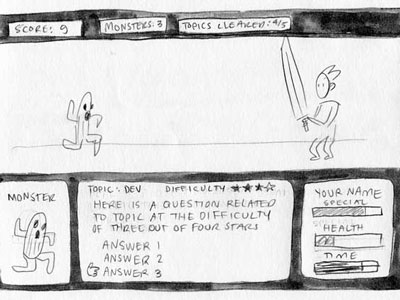 SCORE: 9
MONSTERS: 3
TOPICS CLEARED: 4/5
MONSTER
TOPIC: DEV DIFFICULTY ★★★☆
HERE IS A QUESTION RELATED
TO TOPIC AT THE DIFFICULTY
OF THREE OUT OF FOUR STARS
ANSWER 1
ANSWER 2
ANSWER 3
YOUR NAME
SPECIAL
HEALTH
TIME